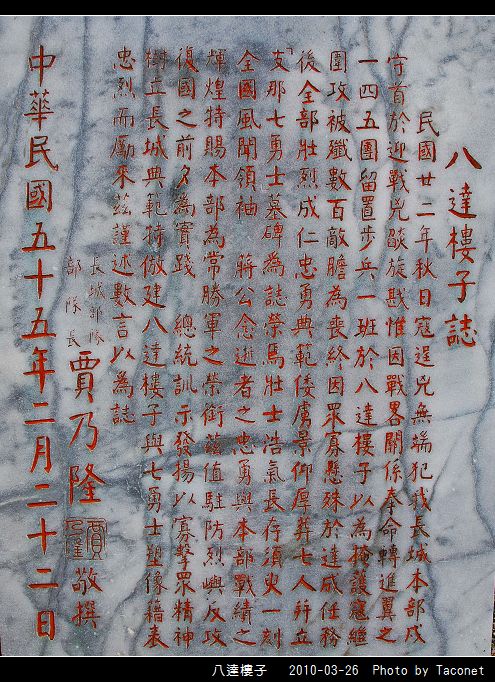 八達樓子誌
民國廿二年秋日寇逞兇無端犯我長城本部戍
守首於迎戰兇燄旋戢惟因戰畧關係奉命轉進翼之
一四五團留置步兵一班於八達樓子以為掩護寇繼
圍攻被殲數百敵膽為喪終因眾寡懸殊於達成任務
後全部壯烈成仁忠勇典範倭虜景仰厚葬七人并立
「支那七勇士墓碑為誌榮焉壯士浩氣長存須臾一刻
全國風聞領袖　蔣公念逝者之忠勇與本部戰績之
輝煌特賜本部為常勝軍之榮銜茲值駐防烈嶼反攻
復國之前夕為實踐　總統訓示發揚以寡擊眾精神
樹立長城典範特倣建八達樓子與七勇士塑像藉表
忠烈而勵來茲謹述數言以為誌
長城部隊
部隊長 賈乃隆 敬撰
賈乃隆
中華民國五十五年二月二十二日
八達樓子 2010-03-26 Photo by Taconet